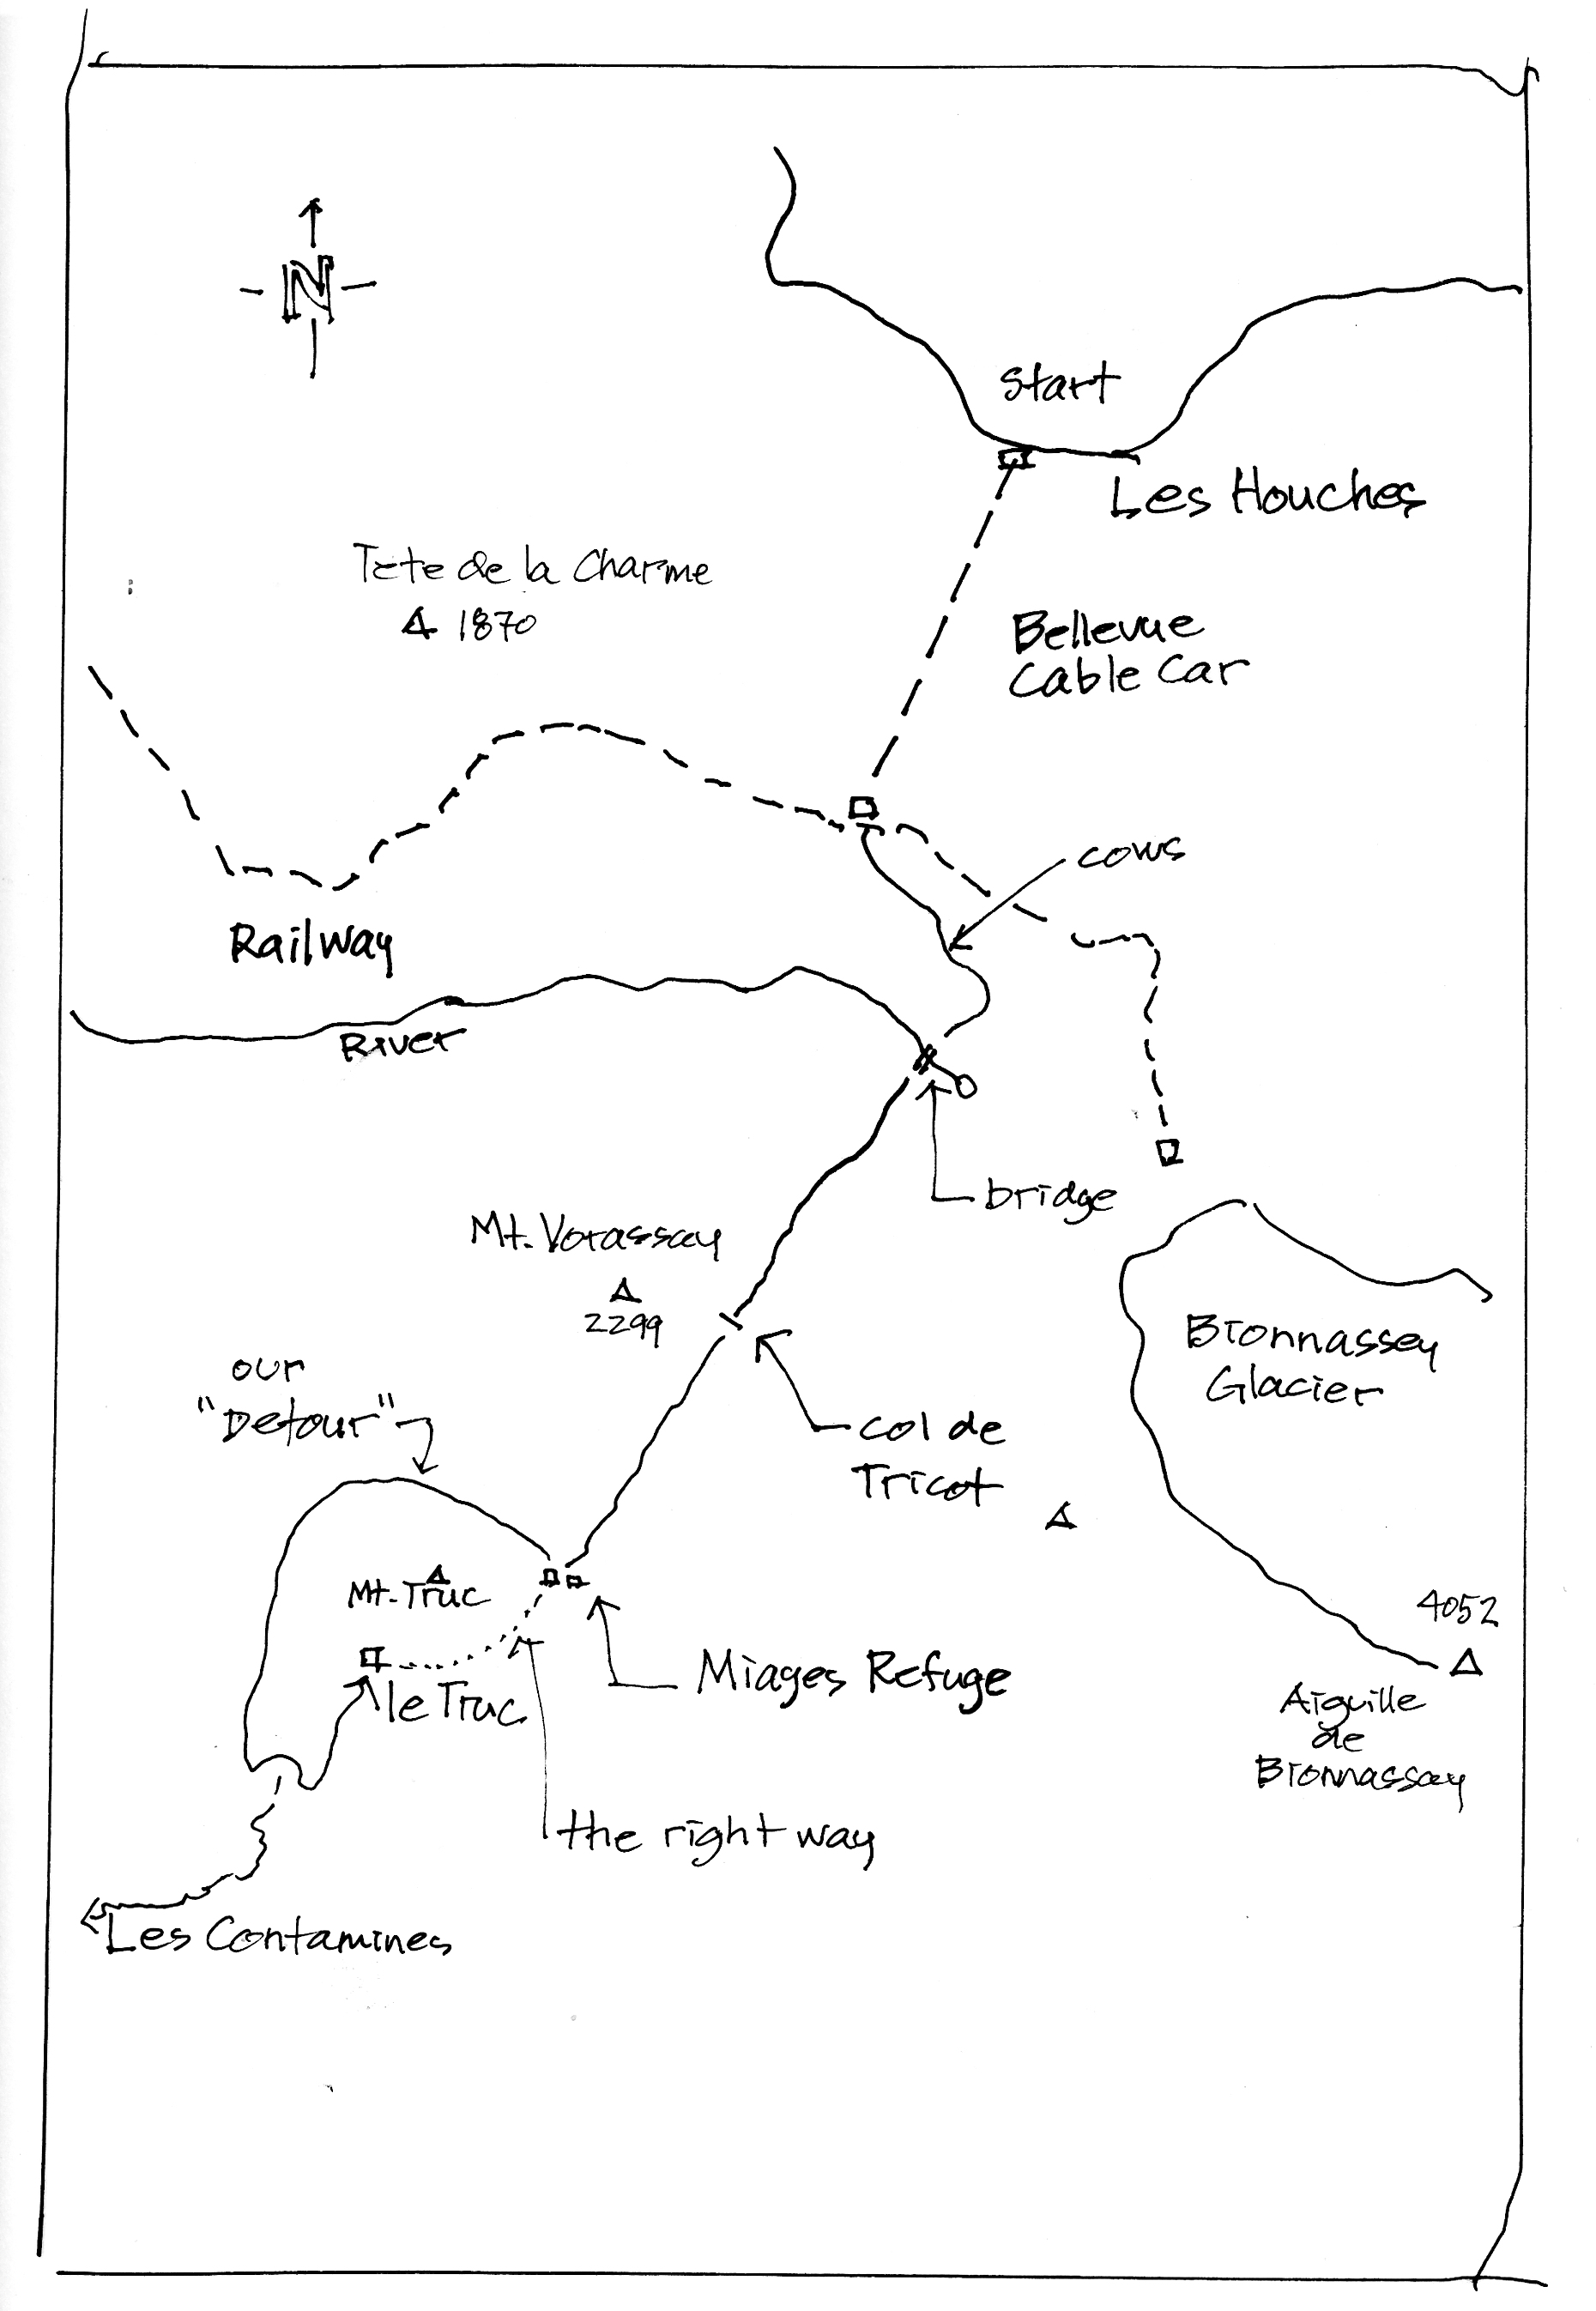 N
Start
Les Houches
Tete de la Charme
1870
Bellevue
Cable Car
cows
Railway
River
bridge
Mt. Vorassay
2299
Bionnassey
Glacier
our
"Detour"
col de
Tricot
Mt. Truc
4052
Miages Refuge
le Truc
Aiguille
de
Bionnassay
the right way
Les Contamines